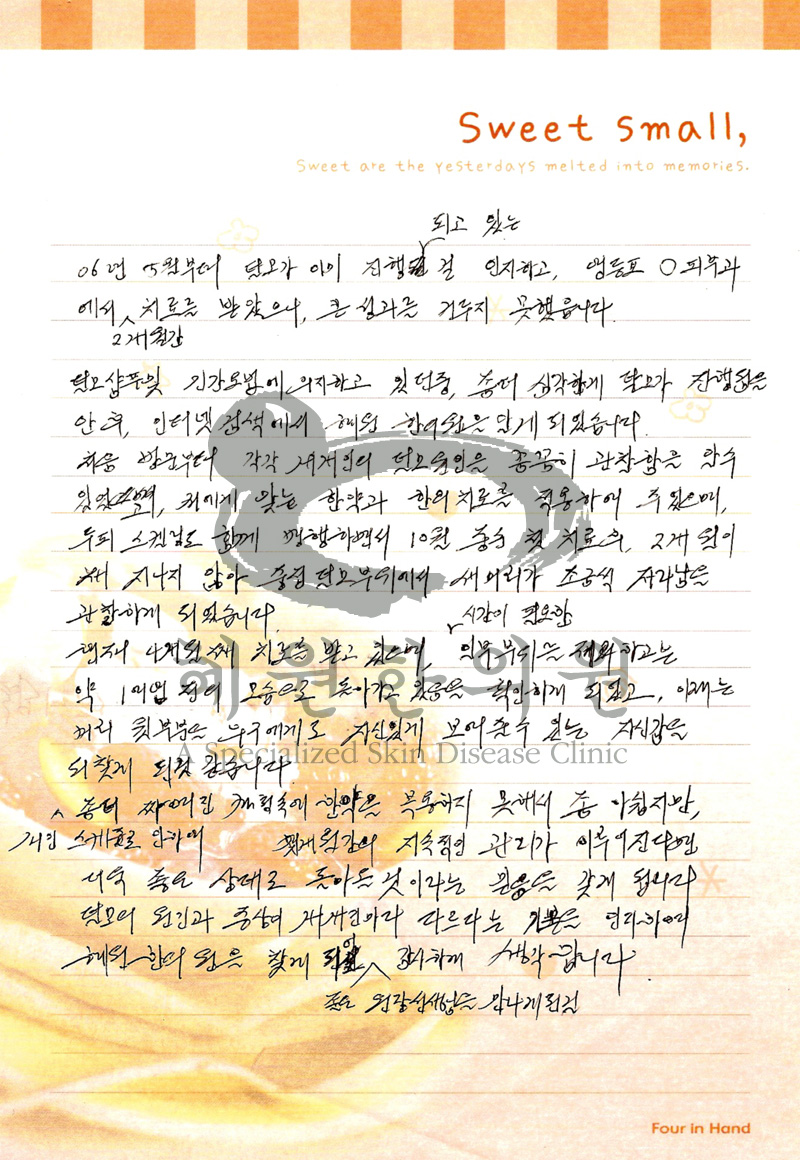 Sweet small,
Sweet are the yesterdays melted into memories.
되고 있는
06년 5월부터 탈모가 이미 진행 걸 인지하고, 영등포 O피부과
에서 치료를 받았으나, 큰 성과를 거두지 못했습니다.
2개월간
탈모샴푸및 민간요법에 의지하고 있던중, 좀더 심각하게 탈모가 진행됨을
안 후, 인터넷 검색에서 혜원 한의원을 알게 되었습니다.
처음 방문부터 각각 개개인의 탈모원인을 꼼꼼히 관찰함을 알수
있었으며, 저에게 맞는 한약과 한의치료를 적용하여 주었으며,
두피 스켈링도 함께 병행하면서 10월 중순 첫 치료후, 2개월이
채 지나지 않아 중점 탈모부위에서 새머리가 조금씩 자라남을
관찰하게 되었습니다.
시간이 필요한
현재 4개월째 치료를 받고 있으며, 일부 부위를 제외하고는
약 1여년 전의 모습으로 돌아가고 있음을 확인하게 되었고, 이제는
머리 윗부분을 누구에게도 자신있게 보여줄수 있는 자신감을
되찾게 되었습니다.
좀더 짜여진 계획속에 한약을 복용하지 못해서 좀 아쉽지만,
개인 스케쥴로 인하여
몇개월간의 지속적인 관리가 이루어진다면
더욱 좋은 상태로 돌아올것이라는 믿음을 갖게 됩니다
탈모의 원인과 증상이 개개인마다 다르다는 기본을 연구하여
혜원한의원을 찾게 되어 감사하게 생각합니다.
좋은 원장선생님을 만나게된걸
혜원한의원
A Specialized Skin Disease Clinic
Four in Hand